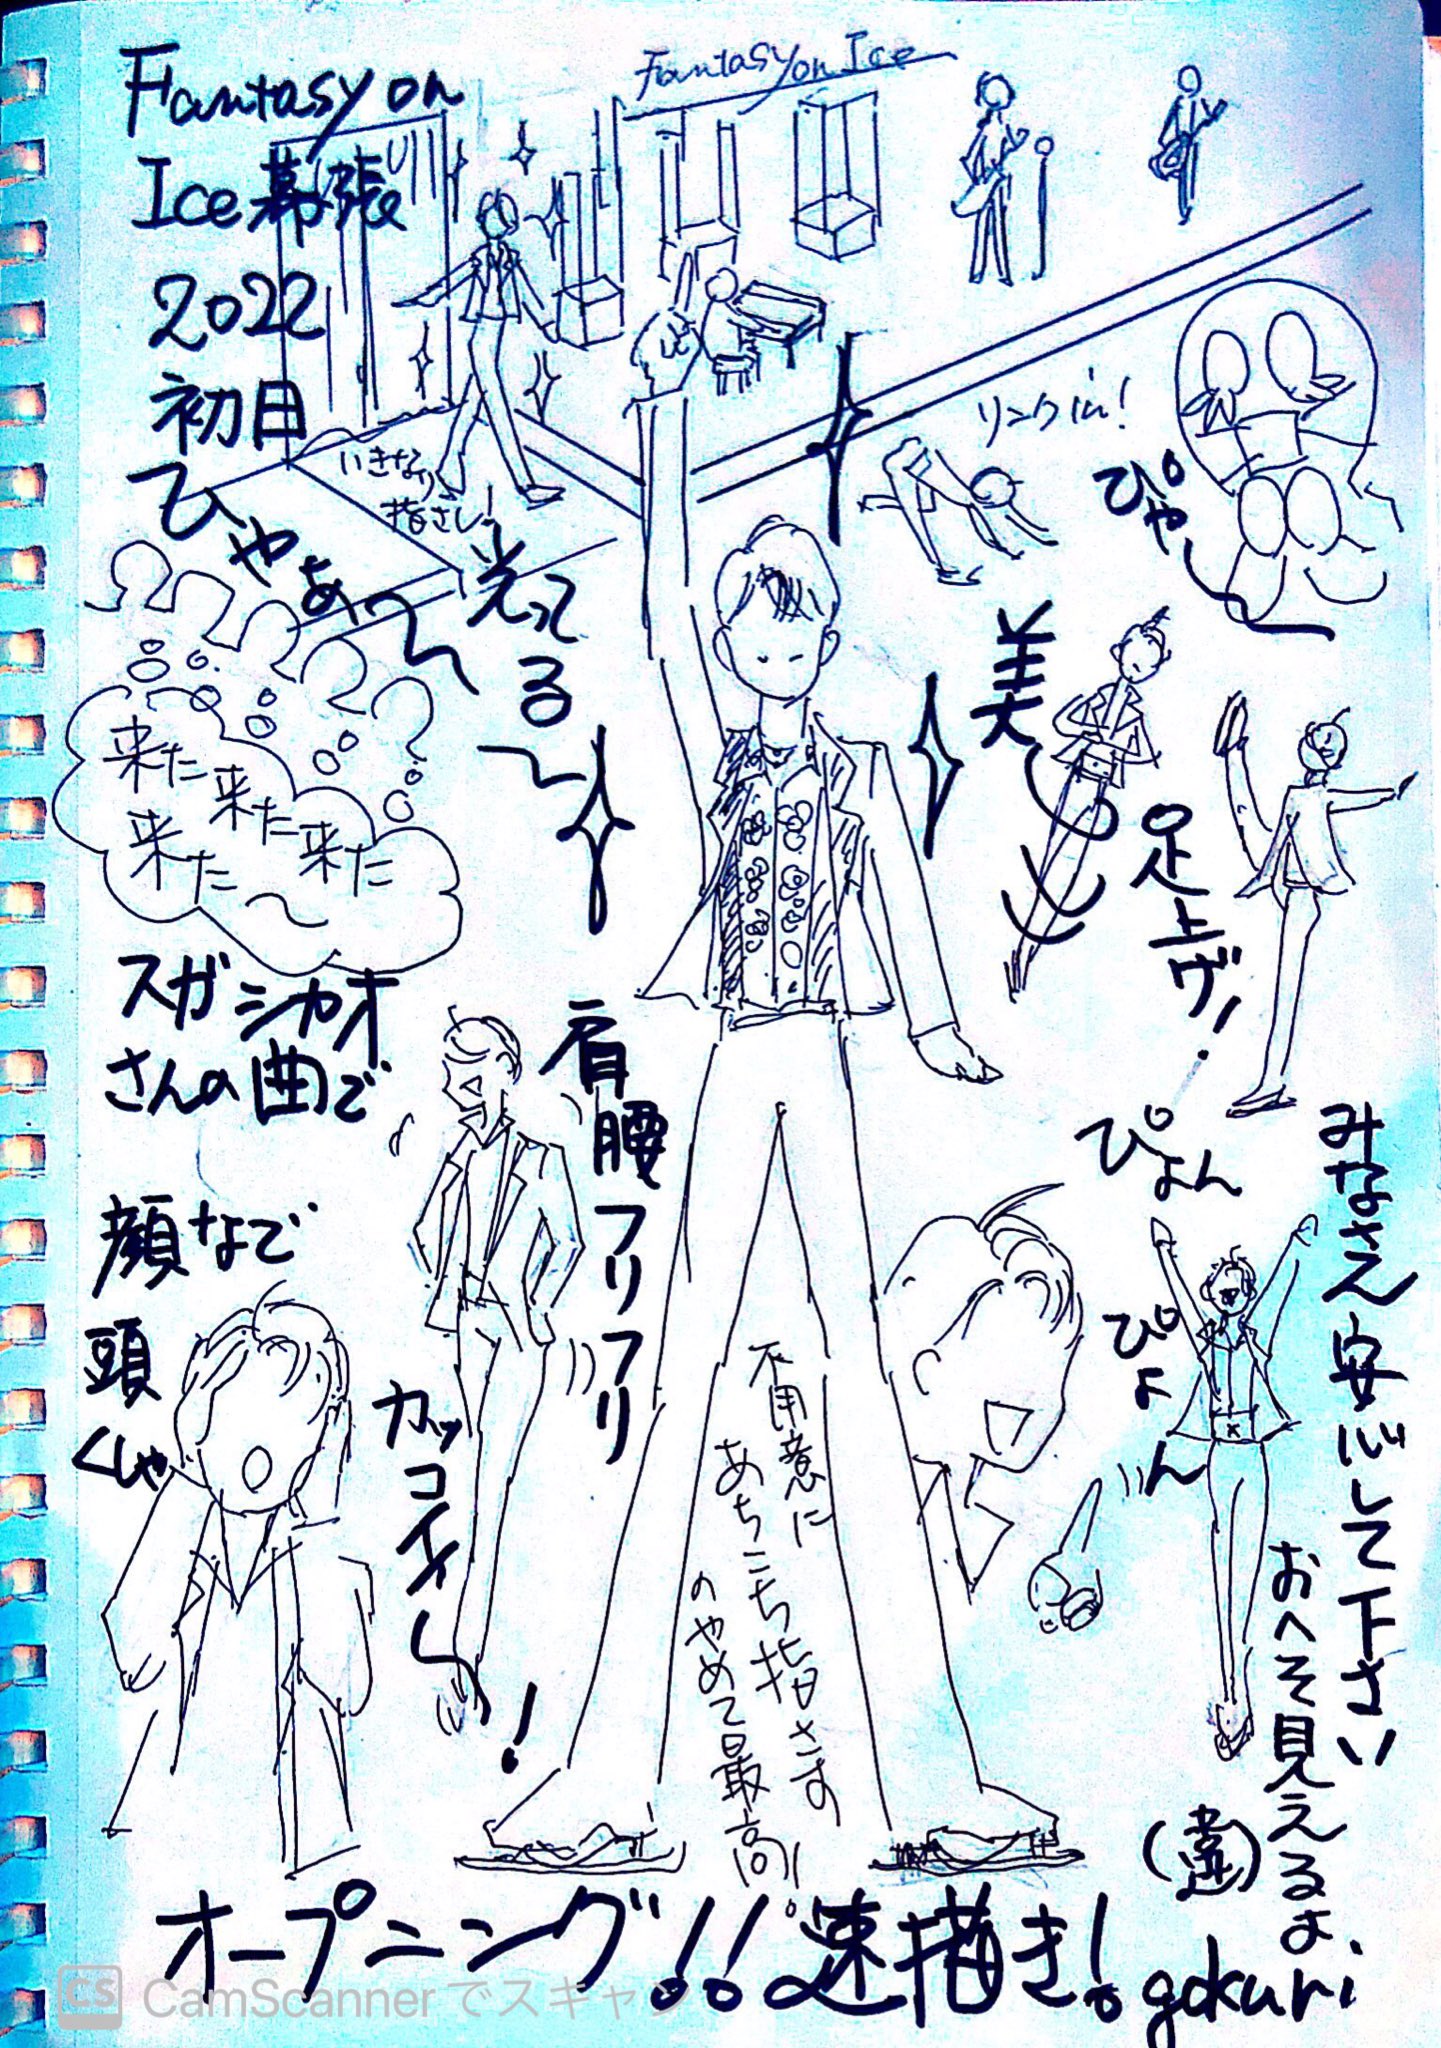 Fantasy on
Ice 幕張
2022
初日
Fantasy on Ice
ひゃあ〜〜
いきなり
指さし!
光って
る〜
リンクin!
ぴゃー
来た来た
来た来た〜
美しい
足上げ!
スガシカオ
さんの曲で
肩腰フリフリ
カッコイイー!
顔なで
頭
くしゃ
ぴょん
ぴょん
みなさん安心して下さい
おへそ見えるよ
(違)
不用意に
あちこち指さす
のやめて最高!
オープニング!!速描き!
gokuri
CS CamScanner でスキャン